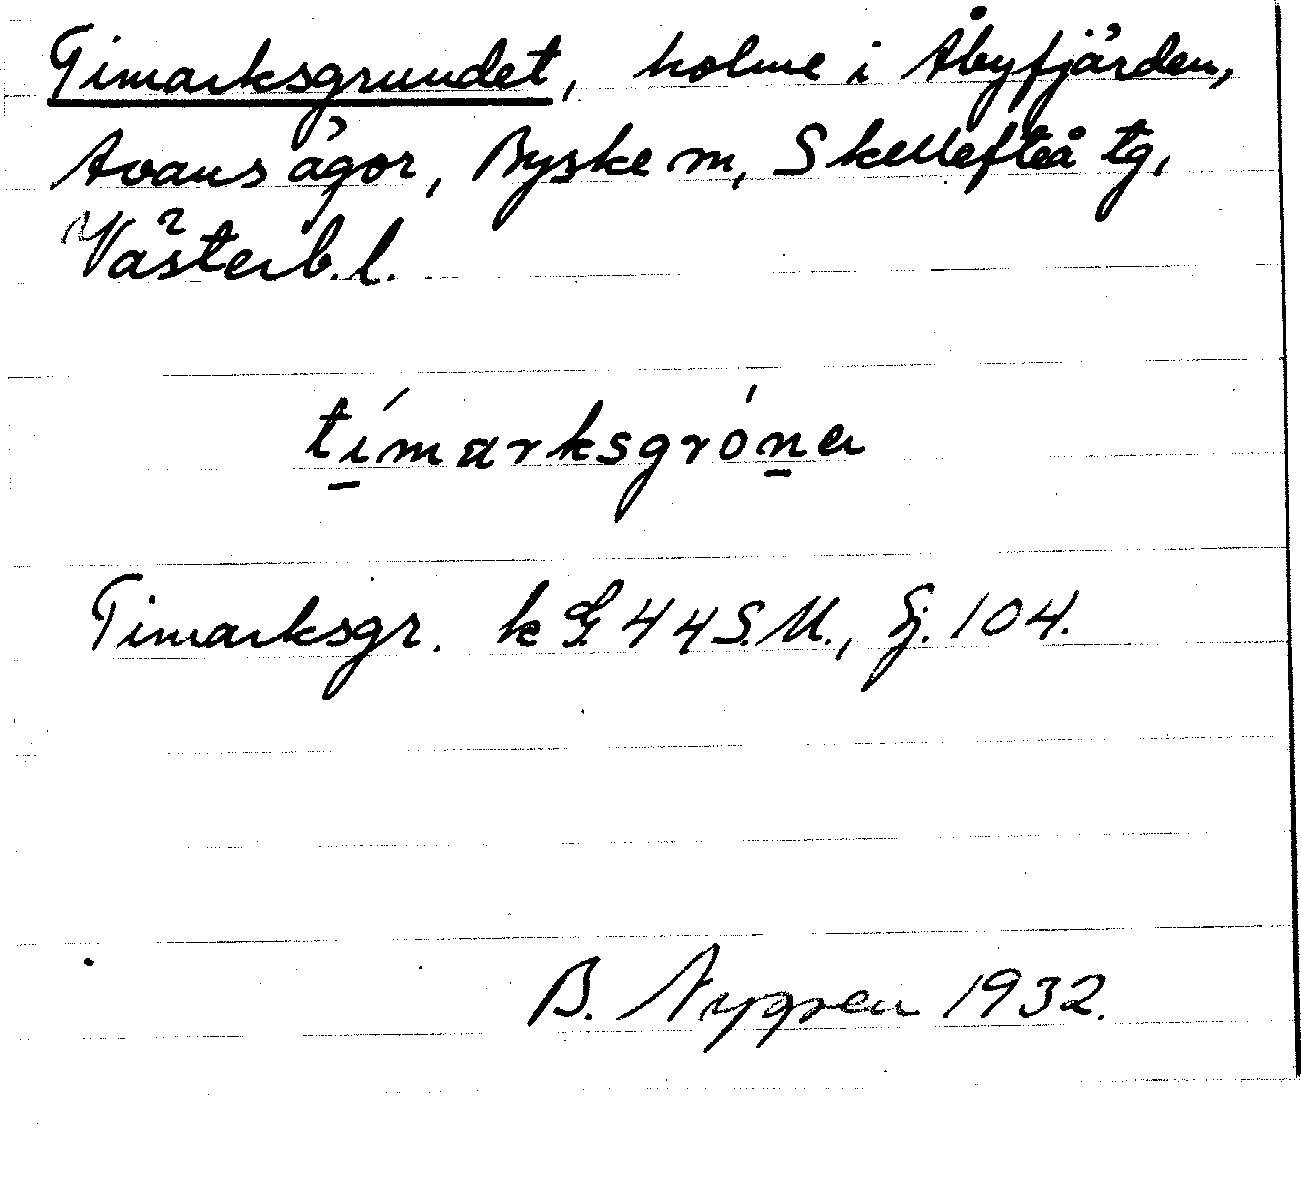 Timarksgrundet, holme i Åbyfjärden,
Avans ägor, Byske m, Skellefteå tg,
Västerb. l.
tímarksgrón̲a
Timarksgr. k G. 44 S.M., Fj. 104.
B. Nygren 1932.